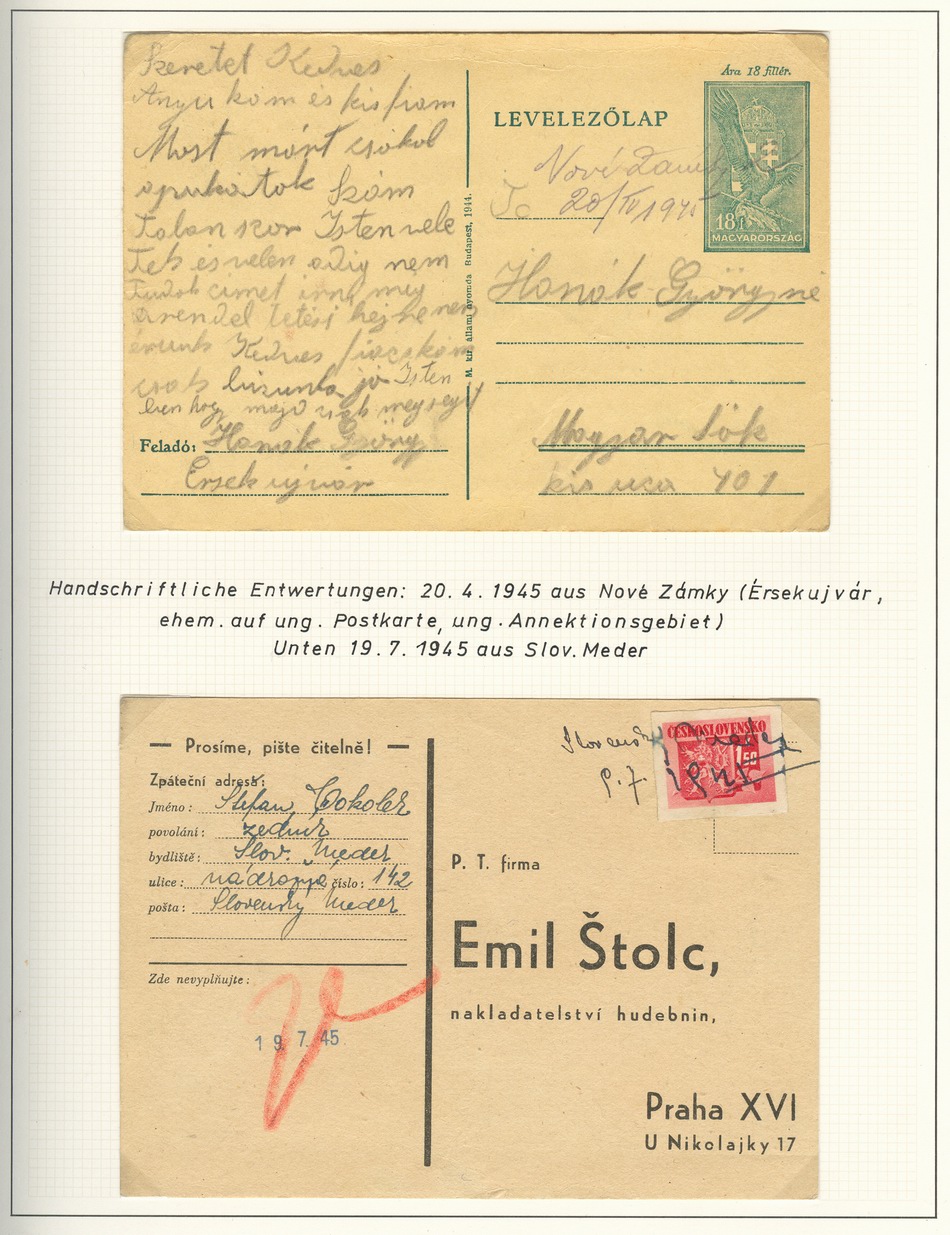 Szeretet Kedves
Anyukám és kis fiam
Most márt csókol
apukátok
Talan Isten vele
Teb és velen adig nem
Tudok címet írni meg
arendel
Kedves fiacskám
csak bizunk jo Isten
ben hogy majd meg segit
Feladó: Hanák György
Ersek ujvár
M. kir. állami nyomda Budapest, 1944.
Ára 18 fillér.
LEVELEZŐLAP
18f
MAGYARORSZÁG
Nové Zamky
20/IV 1945
Hanák Györgyné
Magyar Sók
kis uca 401
Handschriftliche Entwertungen: 20. 4. 1945 aus Nové Zámky (Érsekujvár,
ehem. auf ung. Postkarte, ung. Annektionsgebiet)
Unten 19. 7. 1945 aus Slov. Meder
— Prosíme, pište čitelně! —
Zpáteční adresa:
Jméno: Štefan
povolání: zedník
bydliště: Slov. Meder
ulice: číslo: 142
pošta: Slovenský Meder
Zde nevyplňujte:
19. 7. 45
Slovenský Meder
ČESKOSLOVENSKO
1.50
P. T. firma
Emil Štolc,
nakladatelství hudebnin,
Praha XVI
U Nikolajky 17